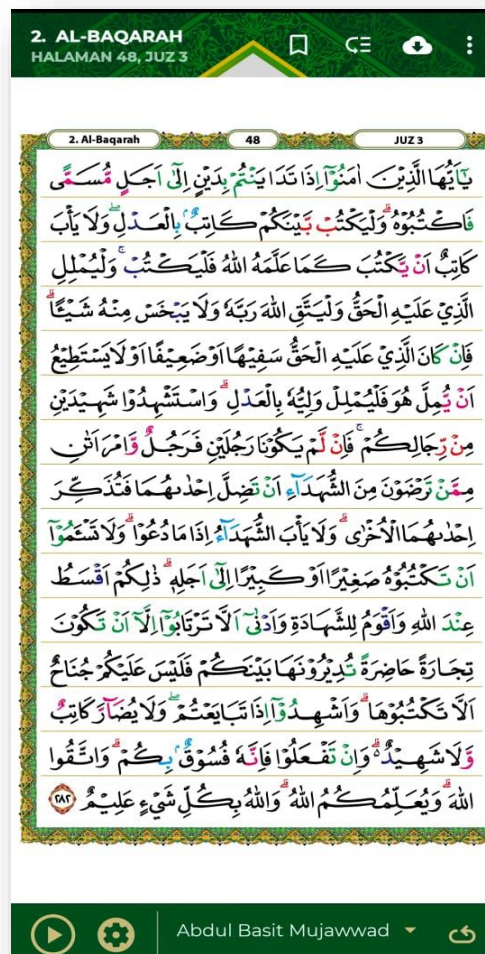 2. AL-BAQARAH
HALAMAN 48, JUZ 3
2. Al-Baqarah
48
JUZ 3
يٰٓاَيُّهَا الَّذِيْنَ اٰمَنُوْٓا اِذَا تَدَايَنْتُمْ بِدَيْنٍ اِلٰٓى اَجَلٍ مُّسَمًّى
فَاكْتُبُوْهُۗ وَلْيَكْتُبْ بَّيْنَكُمْ كَاتِبٌۢ بِالْعَدْلِۖ وَلَا يَأْبَ
كَاتِبٌ اَنْ يَّكْتُبَ كَمَا عَلَّمَهُ اللّٰهُ فَلْيَكْتُبْۚ وَلْيُمْلِلِ
الَّذِيْ عَلَيْهِ الْحَقُّ وَلْيَتَّقِ اللّٰهَ رَبَّهٗ وَلَا يَبْخَسْ مِنْهُ شَيْـًٔاۗ
فَاِنْ كَانَ الَّذِيْ عَلَيْهِ الْحَقُّ سَفِيْهًا اَوْ ضَعِيْفًا اَوْ لَا يَسْتَطِيْعُ
اَنْ يُّمِلَّ هُوَ فَلْيُمْلِلْ وَلِيُّهٗ بِالْعَدْلِۗ وَاسْتَشْهِدُوْا شَهِيْدَيْنِ
مِنْ رِّجَالِكُمْۚ فَاِنْ لَّمْ يَكُوْنَا رَجُلَيْنِ فَرَجُلٌ وَّامْرَاَتٰنِ
مِمَّنْ تَرْضَوْنَ مِنَ الشُّهَدَاۤءِ اَنْ تَضِلَّ اِحْدٰىهُمَا فَتُذَكِّرَ
اِحْدٰىهُمَا الْاُخْرٰىۗ وَلَا يَأْبَ الشُّهَدَاۤءُ اِذَا مَا دُعُوْاۗ وَلَا تَسْـَٔمُوْٓا
اَنْ تَكْتُبُوْهُ صَغِيْرًا اَوْ كَبِيْرًا اِلٰٓى اَجَلِهٖۗ ذٰلِكُمْ اَقْسَطُ
عِنْدَ اللّٰهِ وَاَقْوَمُ لِلشَّهَادَةِ وَاَدْنٰىٓ اَلَّا تَرْتَابُوْٓا اِلَّآ اَنْ تَكُوْنَ
تِجَارَةً حَاضِرَةً تُدِيْرُوْنَهَا بَيْنَكُمْ فَلَيْسَ عَلَيْكُمْ جُنَاحٌ
اَلَّا تَكْتُبُوْهَاۗ وَاَشْهِدُوْٓا اِذَا تَبَايَعْتُمْۖ وَلَا يُضَاۤرَّ كَاتِبٌ
وَّلَا شَهِيْدٌۗ وَاِنْ تَفْعَلُوْا فَاِنَّهٗ فُسُوْقٌۢ بِكُمْۗ وَاتَّقُوا
اللّٰهَۗ وَيُعَلِّمُكُمُ اللّٰهُۗ وَاللّٰهُ بِكُلِّ شَيْءٍ عَلِيْمٌ ٢٨٢
Abdul Basit Mujawwad